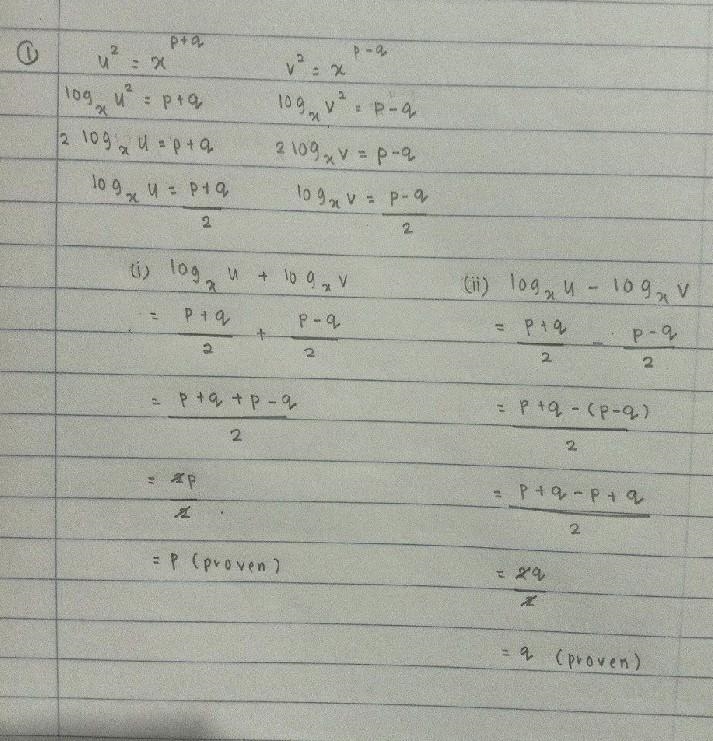 ① u² = x^(p+q)    v² = x^(p-q)
logₓ u² = p+q    logₓ v² = p-q
2 logₓ u = p+q    2 logₓ v = p-q
logₓ u = (p+q)/2    logₓ v = (p-q)/2
(i) logₓ u + logₓ v
= (p+q)/2 + (p-q)/2
= (p+q+p-q)/2
= 2p/2
= p (proven)
(ii) logₓ u - logₓ v
= (p+q)/2 - (p-q)/2
= (p+q-(p-q))/2
= (p+q-p+q)/2
= 2q/2
= q (proven)